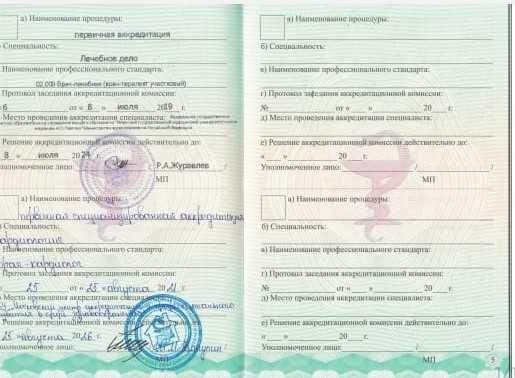 а) Наименование процедуры:
первичная аккредитация
Специальность:
Лечебное дело
Наименование профессионального стандарта:
02.009 Врач-лечебник (врач-терапевт участковый)
Протокол заседания аккредитационной комиссии:
6 от « 8 » июля 2019 г.
Место проведения аккредитации специалиста:
Решение аккредитационной комиссии действительно до:
8 » июля 2024 г.
уполномоченное лицо: / Р.А.Журавлев /
МП
а) Наименование процедуры:
первичная специализированная аккредитация
Специальность:
кардиология
Наименование профессионального стандарта:
врач-кардиолог
Протокол заседания аккредитационной комиссии:
25 от « 25 » августа 2021 г.
Место проведения аккредитации специалиста:
Решение аккредитационной комиссии действительно до:
25 » августа 2026 г.
уполномоченное лицо:
МП
а) Наименование процедуры:
б) Специальность:
в) Наименование профессионального стандарта:
г) Протокол заседания аккредитационной комиссии:
№ от « » 20 г.
д) Место проведения аккредитации специалиста:
е) Решение аккредитационной комиссии действительно до:
« » 20 г.
Уполномоченное лицо: / /
МП
а) Наименование процедуры:
б) Специальность:
в) Наименование профессионального стандарта:
г) Протокол заседания аккредитационной комиссии:
№ от « » 20 г.
д) Место проведения аккредитации специалиста:
е) Решение аккредитационной комиссии действительно до:
« » 20 г.
Уполномоченное лицо: / /
МП
5